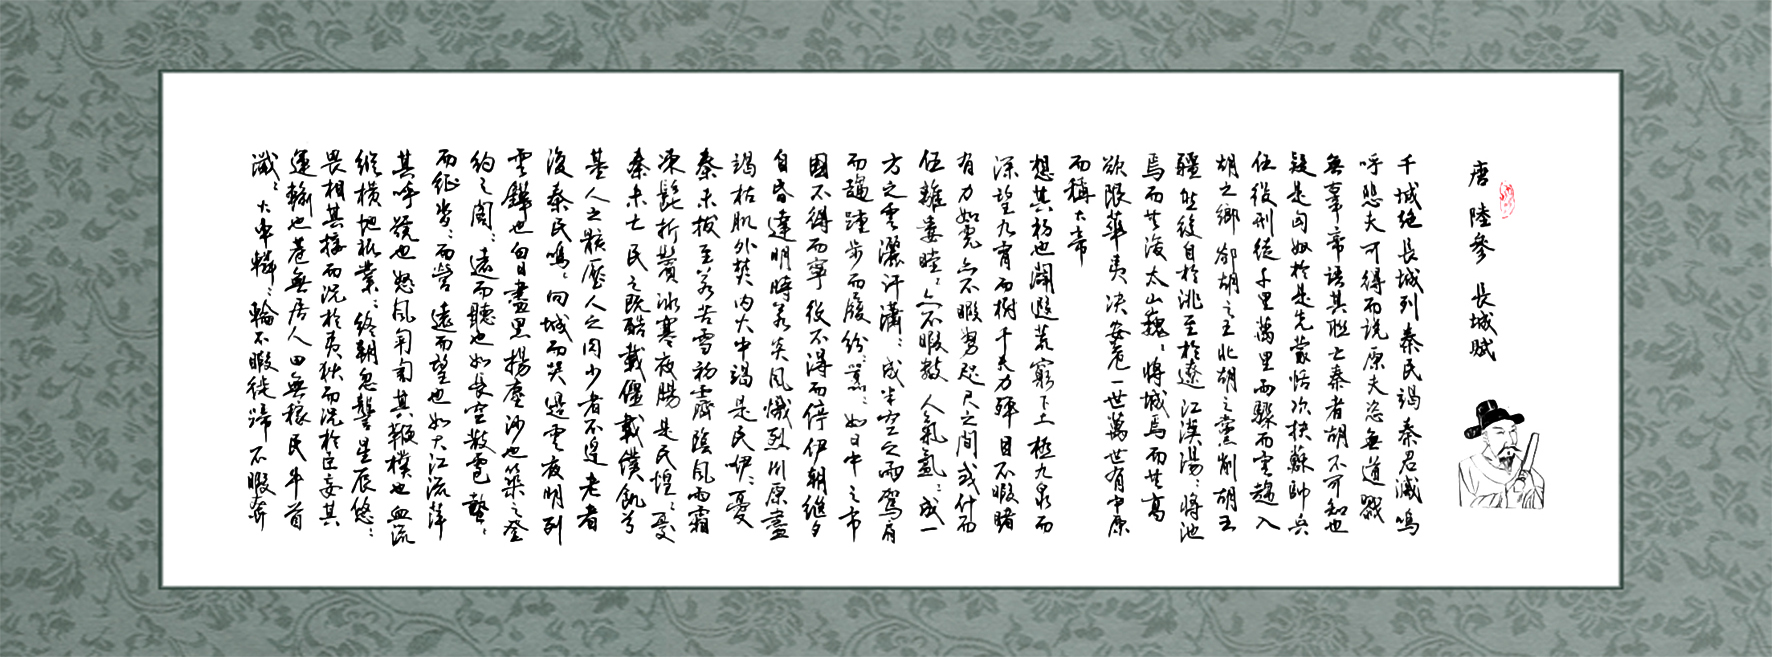 唐 陸參 長城賦
千城絶長城列秦民竭秦君滅嗚
呼悲夫可得而説原夫恣無道戮
無辜帝語其臣亡秦者胡不可知也
疑是匈奴於是先蒙恬次扶蘇帥兵
伍役刑徒千里萬里雨驟而雲趨入
胡之鄉郤胡之主北胡之黨削胡王
疆然後自於洮至於遼江漢湯：將池
焉而苦淺太山巍：將城焉而苦高
欲限華夷决安危一世萬世有中原
而稱大帝
想其初也闢遐荒窮下土極九泉而
深望九霄而樹千夫力殫目不暇睹
有力如虎亦不暇努咫尺之間或什而
伍離婁睦：亦不暇數人氣氳：成一
方之雲灑汗瀟：成半空之雨駕肩
而趨踵步而履紛：如日中之市
國不得而寧役不得而停伊朝繼夕
自昏達明時若炎風熾烈川原盡
竭枯肌外焚内火中竭是民咿：憂
秦未拔至若苦雪初霽陰風雨霜
凍髭折鬢冰寒夜腸是民惶：憂
秦未亡民之既酷載僵載僕飢兮
基人之骸壓人之肉少者不逞老者
後秦民嗚：向城而哭邊雲夜明列
雲鏵也白日晝黑揚塵沙也築之登
約之閣：遠而聽也如長空散雹蟄：
而征沓：而營遠而望也如大江流萍
其呼號也怒風匉訇其鞭樸也血流
縱橫地祇業：終朝忽聾星辰悠：
畏相其採而況於夷狄而況於臣妾其
運輸也巷無居人田無稼民牛首
濈：大車轔：輪不暇徒蹄不暇奔